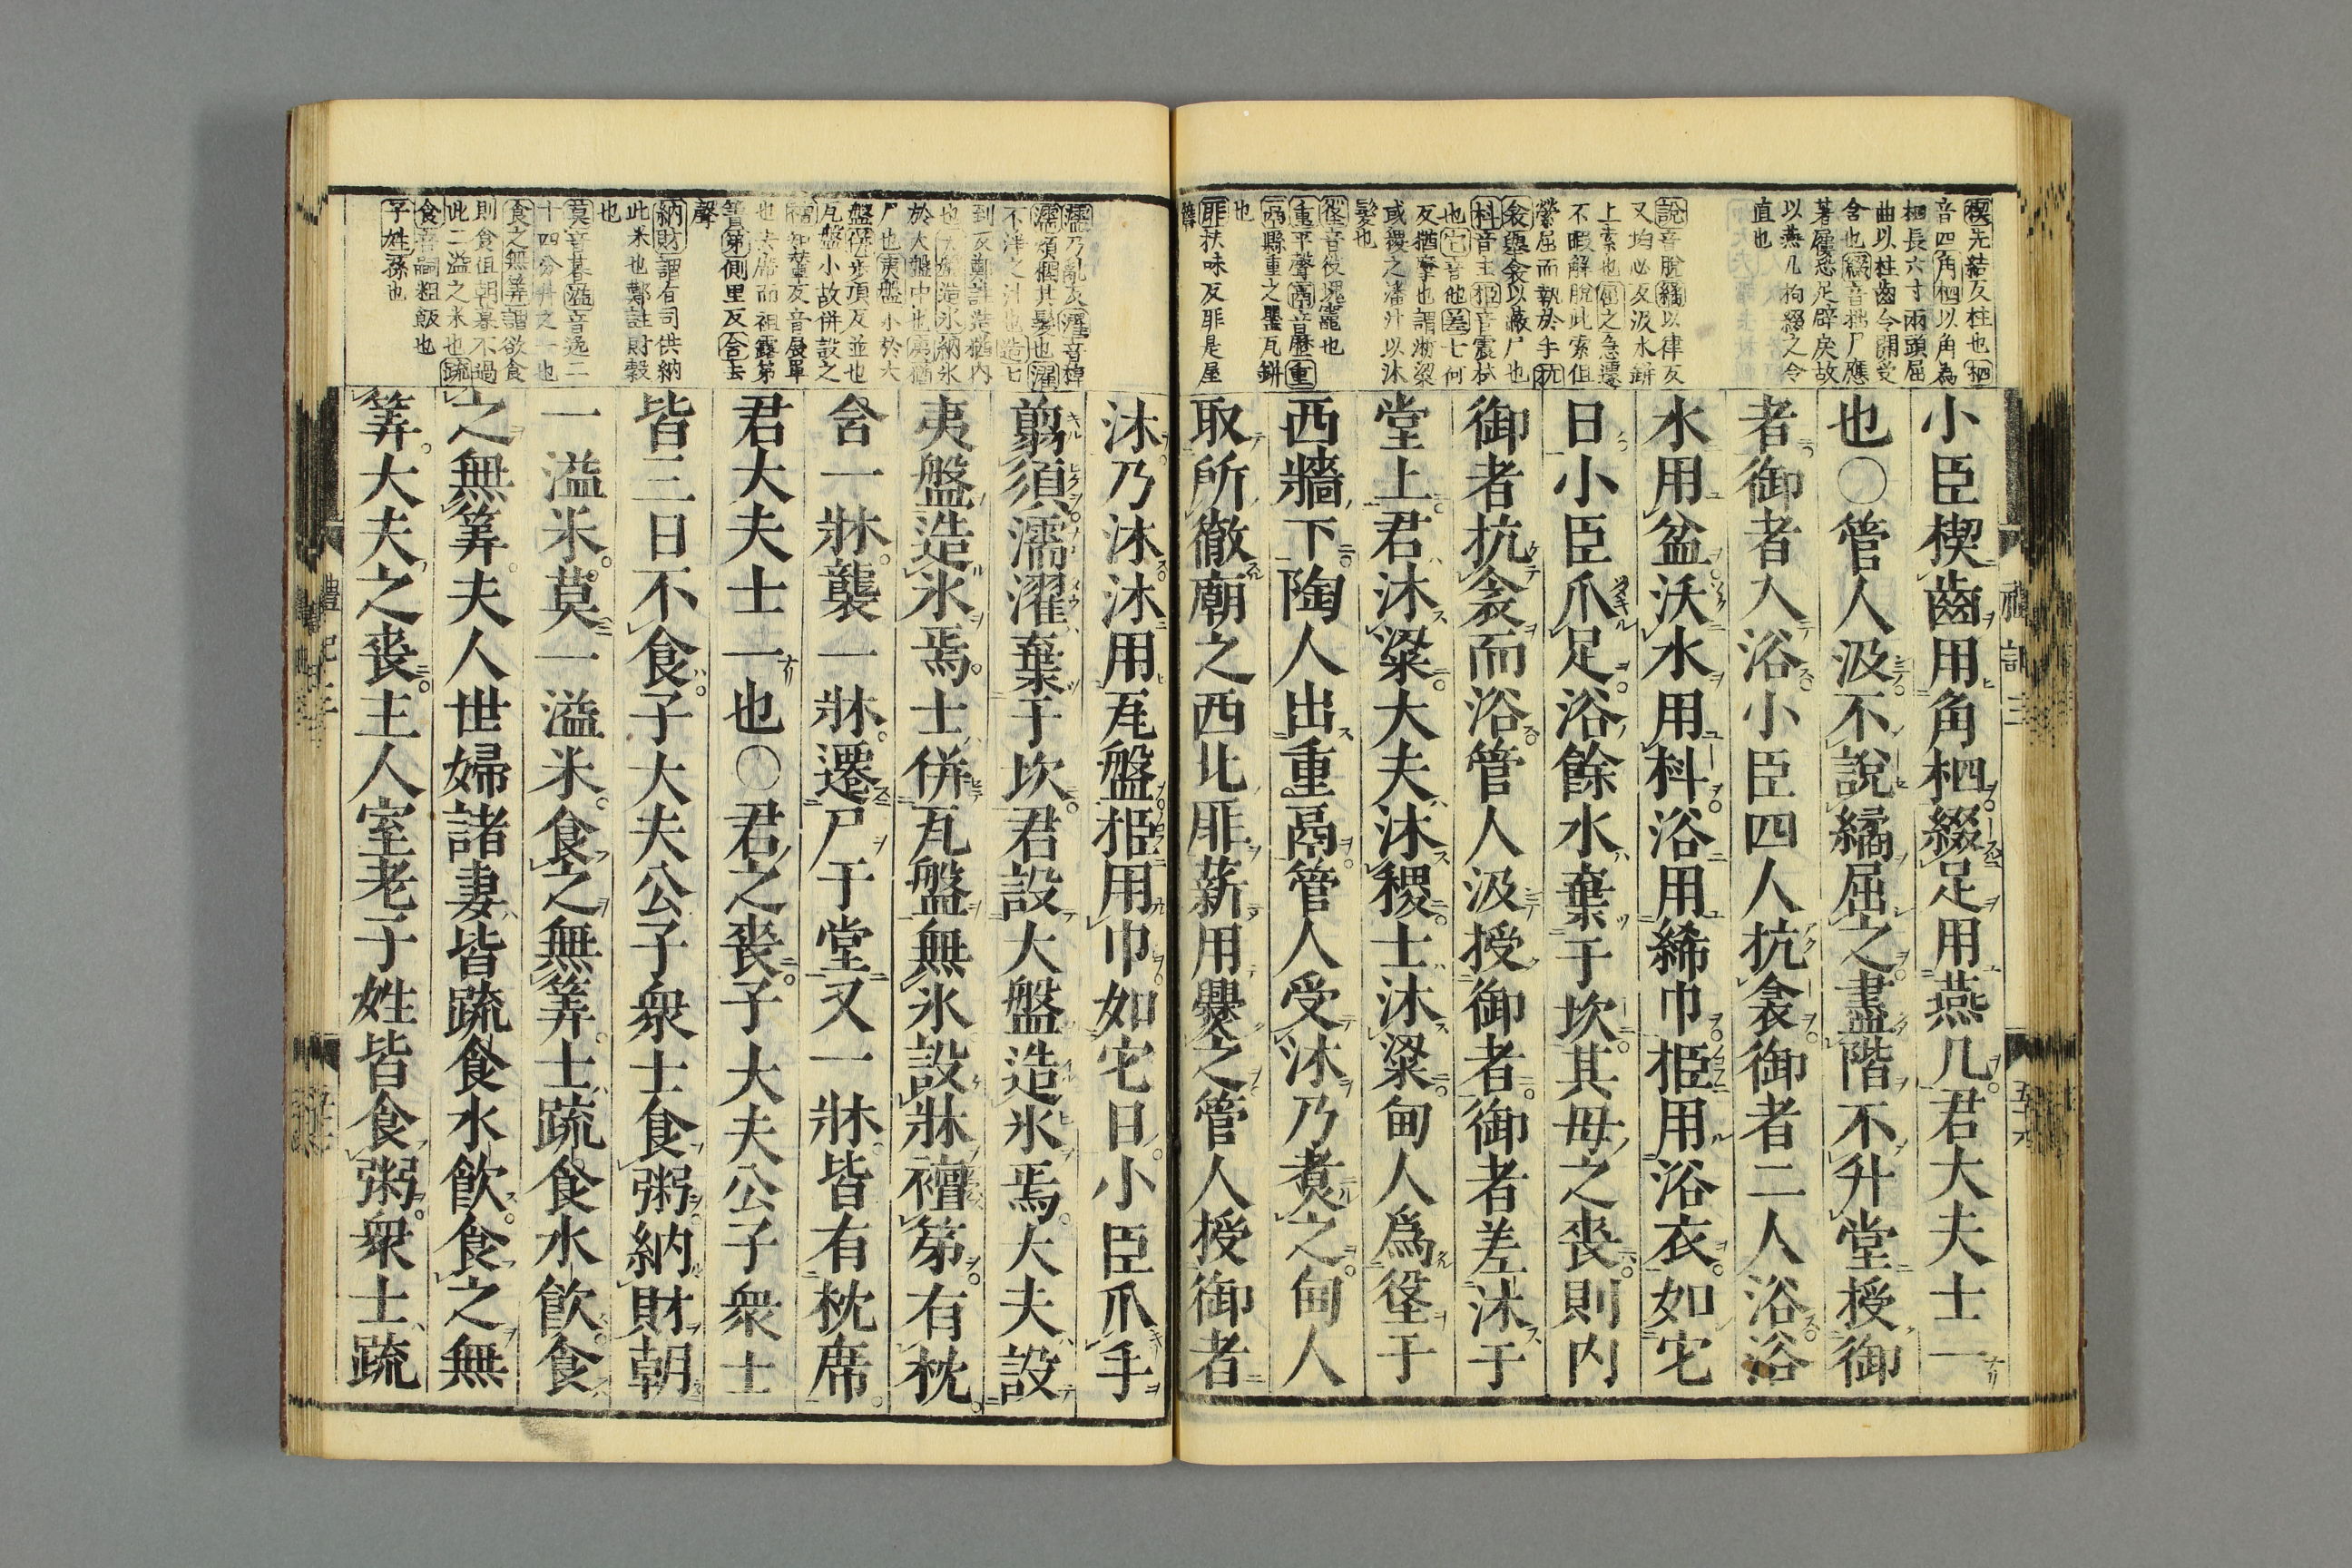 小臣楔齒用角柶綴足用燕几君大夫士一
也○管人汲不說繘屈之盡階不升堂授御
者御者入浴小臣四人抗衾御者二人浴浴
水用盆沃水用枓浴用絺巾挋用浴衣如它
日小臣爪足浴餘水棄于坎其母之喪則內
御者抗衾而浴管人汲授御者御者差沐于
堂上君沐粱大夫沐稷士沐粱甸人爲垼于
西牆下陶人出重鬲管人受沐乃煮之甸人
取所徹廟之西北厞薪用爨之管人授御者
沐乃沐沐用瓦盤挋用巾如它日小臣爪手
翦須濡濯棄于坎君設大盤造氷焉大夫設
夷盤造氷焉士併瓦盤無氷設牀襢笫有枕
含一牀襲一牀遷尸于堂又一牀皆有枕席
君大夫士一也○君之喪子大夫公子衆士
皆三日不食子大夫公子衆士食粥納財朝
一溢米莫一溢米食之無筭士疏食水飲食
之無筭夫人世婦諸妻皆疏食水飲食之無
筭大夫之喪主人室老子姓皆食粥衆士疏
楔先結反柱也柶
音四角柶以角為
柶長六寸兩頭屈
曲以柱齒令開受
含也繘音拙尸應
著屨恐足辟戾故
以燕几拘綴之令
直也
說音脫繘以律反
又均必反汲水缾
上索也屈之急遽
不暇解脫此索但
縈屈而執於手抗
衾舉衾以蔽尸也
枓音主挋音震拭
也它音他差七何
反猶摩也謂淅粱
或稷之潘汁以沐
髮也
垼音役塊竈也
重平聲鬲音歷重
鬲縣重之罌瓦缾
也
厞扶味反厞是屋
簷
濡乃亂反濯音棹
濡煩撋其髮也濯
不淨之汁也造七
到反鄭註造猶內
也大盤造氷納氷
於大盤中也夷猶
尸也夷盤小於大
盤併步頂反並也
瓦盤小故併設之
襢知輦反音展單
也去席而袒露笫
簀笫側里反含去
聲
納財謂有司供納
此米也鄭註財穀
也
莫音暮溢音逸二
十四分升之一也
食之無筭謂欲食
則食但朝暮不過
此二溢之米也疏
食音嗣粗飯也
子姓孫也
禮記三
五十六